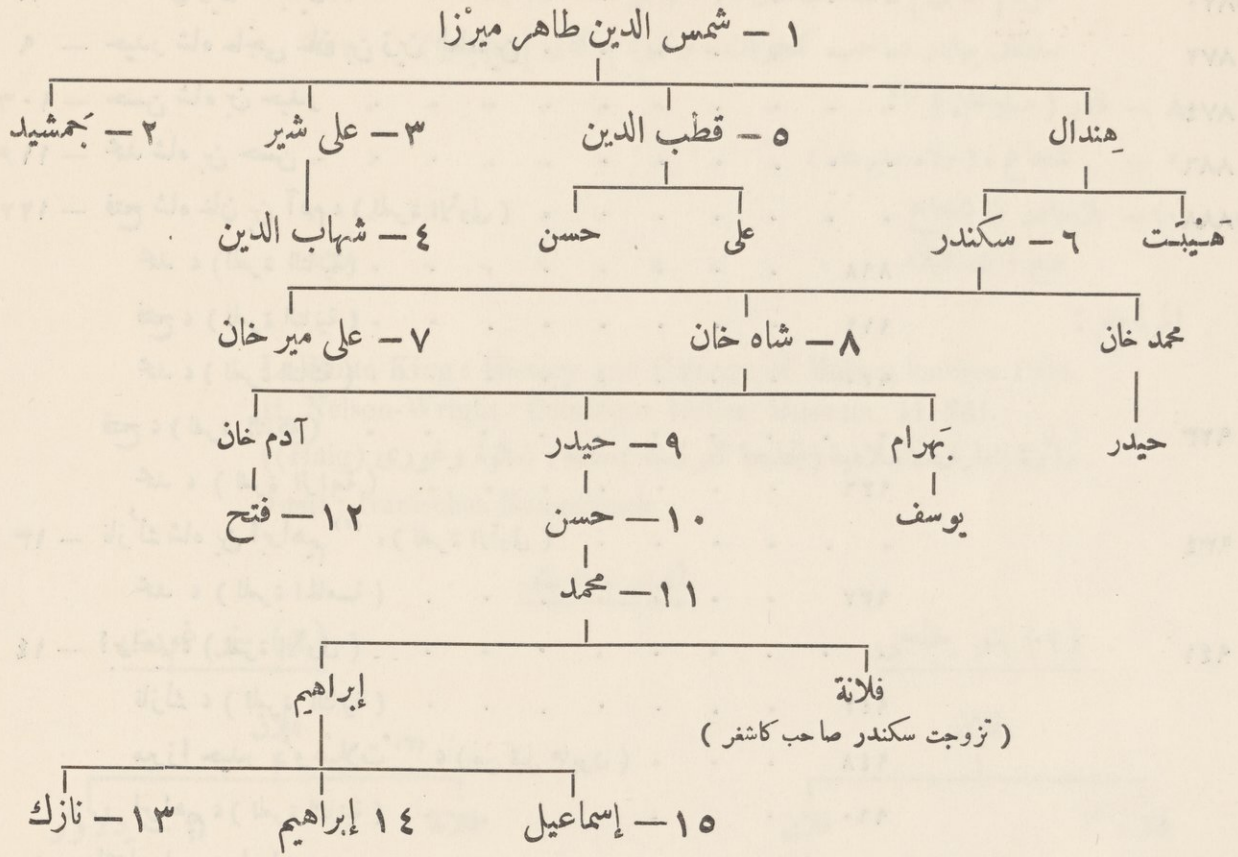 ١ – شمس الدين طاهر ميرْزا
هِندال ٥ – قطب الدين ٣ – على شير ٢ – جَمشيد
هَـيْبَـت ٦ – سكندر على حسن ٤ – شهاب الدين
محمد خان ٨ – شاه خان ٧ – على مير خان
حيدر بَهرام ٩ – حيدر آدم خان
يوسف ١٠ – حسن ١٢ – فتح
١١ – محمد
فلانة إبراهيم
( تزوجت سكندر صاحب كاشغر )
١٥ – إسماعيل ١٤ إبراهيم ١٣ – نازك